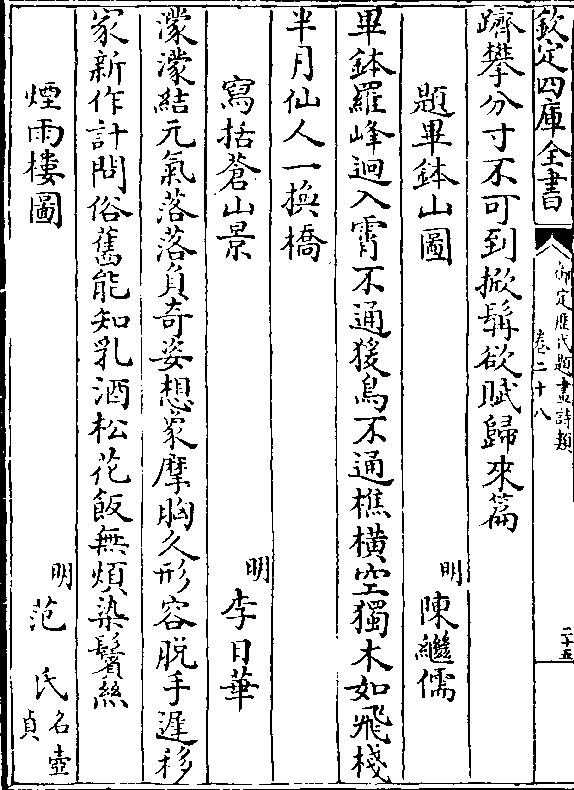 欽定四庫全書
御定歷代題畫詩類
卷二十八
二十五
躋攀分寸不可到掀髯欲賦歸來篇
題畢鉢山圖
明
陳繼儒
畢鉢羅峰迥入霄不通猨鳥不通樵橫空獨木如飛棧
半月仙人一換橋
寫括蒼山景
明
李日華
濛濛結元氣落落負奇姿想象摩胸久形容脱手遲移
家新作計問俗舊能知乳酒松花飯無煩染鬢絲
煙雨樓圖
明
范氏名壺貞